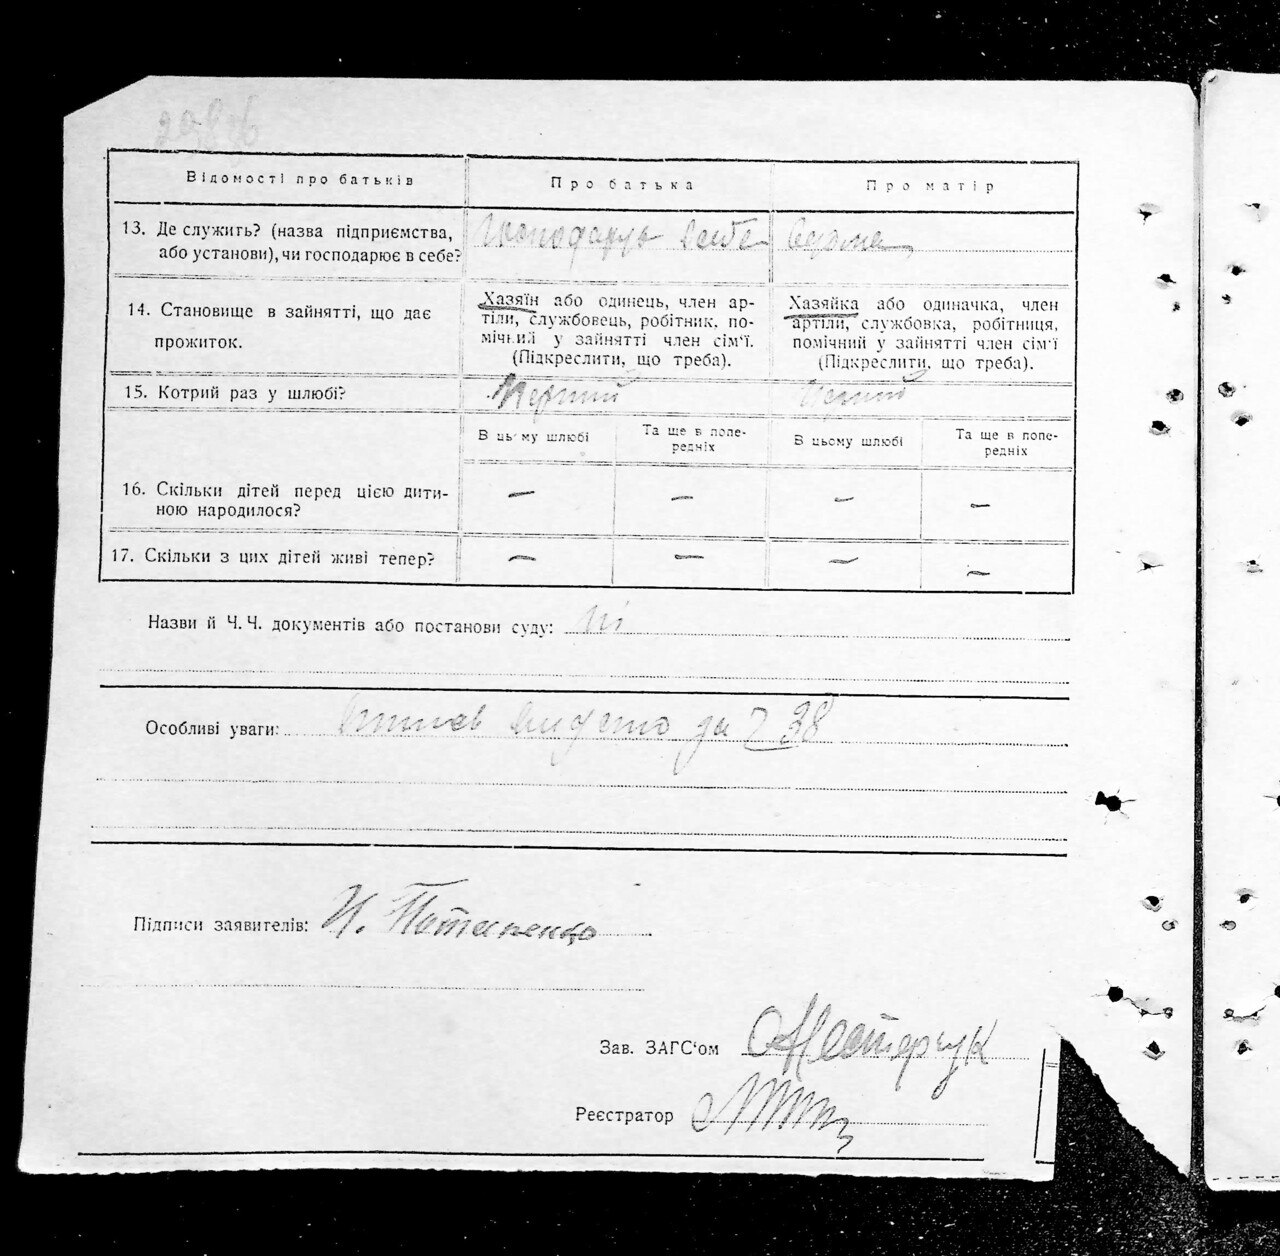 Відомості про батьків
Про батька
Про матір
13. Де служить? (назва підприємства,
або установи), чи господарює в себе?
14. Становище в зайнятті, що дає
прожиток.
Хазяїн або одинець, член ар-
тіли, службовець, робітник, по-
мічний у зайнятті член сім'ї.
(Підкреслити, що треба).
Хазяйка або одиначка, член
артіли, службовка, робітниця,
помічний у зайнятті член сім'ї
(Підкреслити, що треба).
15. Котрий раз у шлюбі?
Перший
Перший
В цьому шлюбі
Та ще в попе-
редніх
В цьому шлюбі
Та ще в попе-
редніх
16. Скільки дітей перед цією дити-
ною народилося?
— — — —
17. Скільки з цих дітей живі тепер?
— — — —
Назви й Ч. Ч. документів або постанови суду: Ні
Особливі уваги: видано за 38
Підписи заявителів: И.
Зав. ЗАГС'ом Нестерчук
Реєстратор